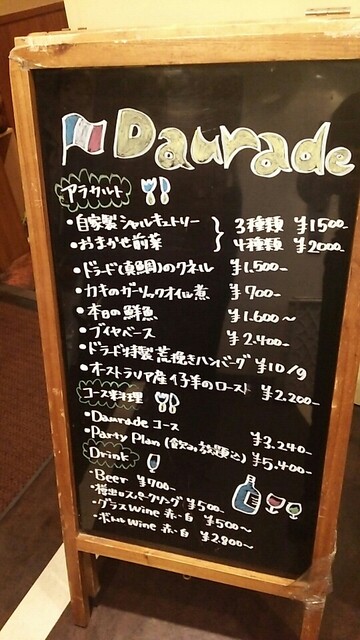 Daurade
アラカルト
・自家製シャルキュトリー } 3種類 ¥1500-
・おまかせ前菜 4種類 ¥2000-
・ドラード(真鯛)のクネル ¥1.500-
・カキのガーリックオイル煮 ¥700-
・本日の鮮魚 ¥1.600~
・ブイヤベース ¥2.400-
・ドラード特製荒挽きハンバーグ ¥10/g
・オーストラリア産仔羊のロースト ¥2.200-
コース料理
・Dauradeコース ¥3.240-
・Party Plan (飲み放題込) ¥5.400-
Drink
・Beer ¥700-
・樽出しスパークリング ¥500-
・グラスwine 赤・白 ¥500~
・ボトルwine 赤・白 ¥2.800~